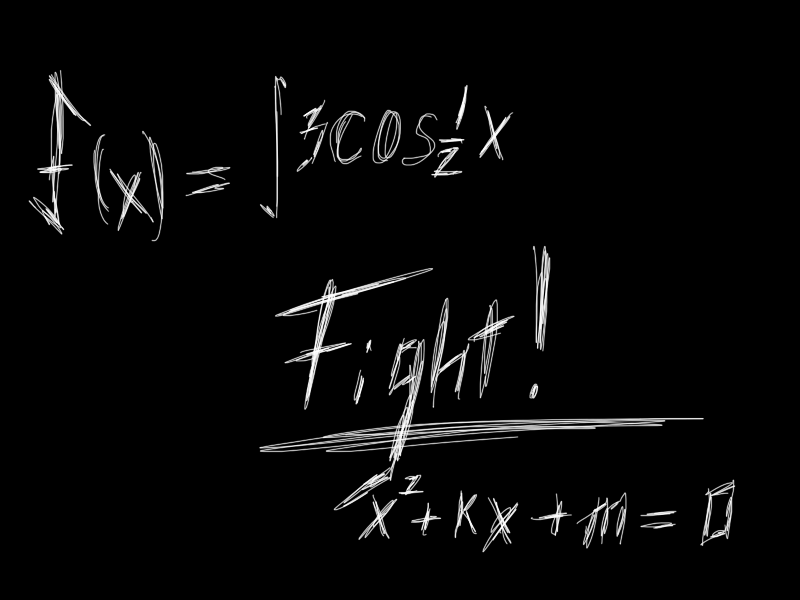 f(x) = ∫3cos½x
Fight!
x²+kx+m=0